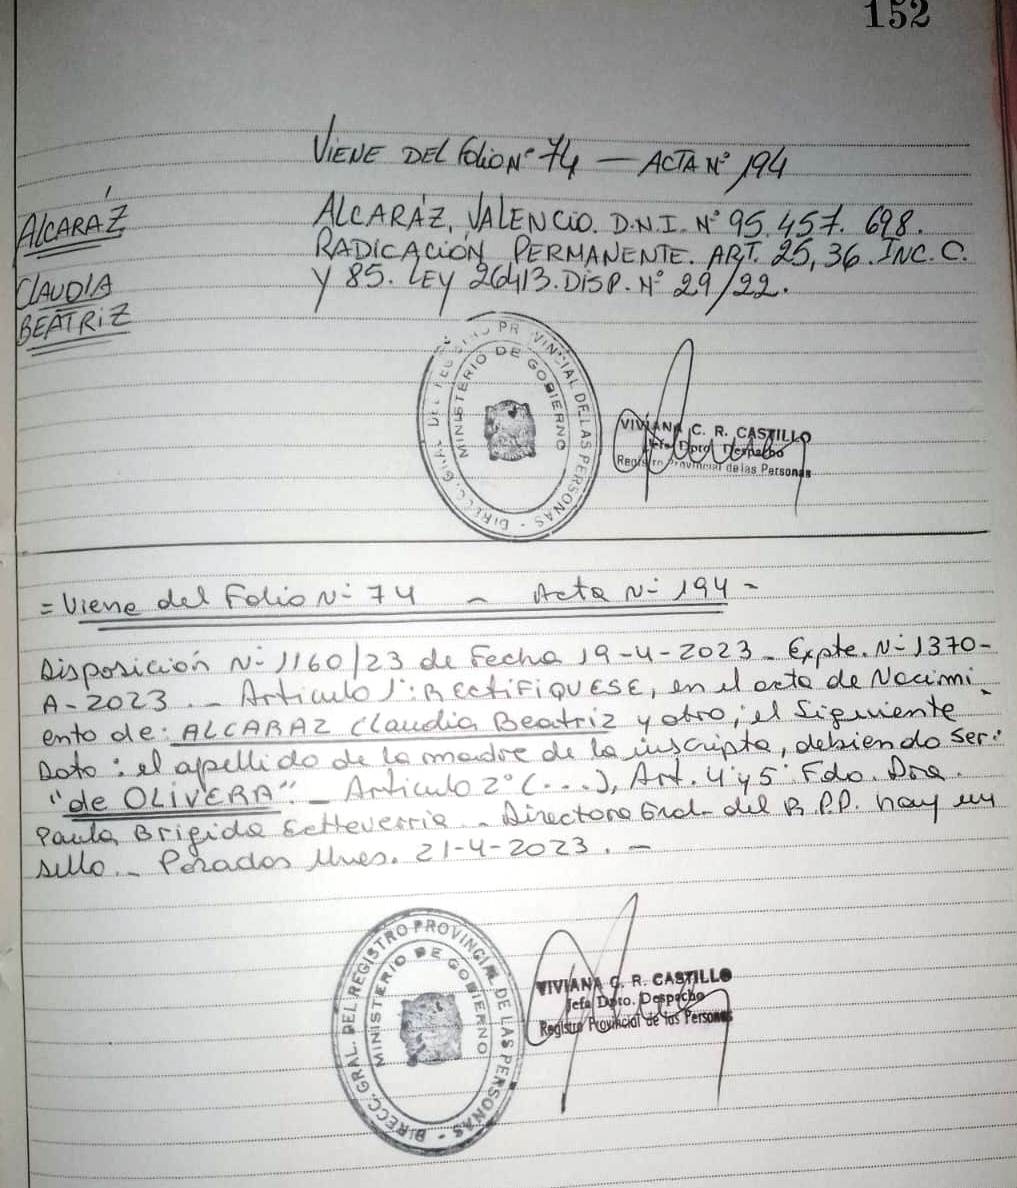 152
VIENE DEL FOLIO Nº 74 — ACTA Nº 194
ALCARÁZ
CLAUDIA
BEATRIZ
ALCARÁZ, VALENCIO. D.N.I. Nº 95.457.698.
RADICACIÓN PERMANENTE. ART. 25, 36. INC. C.
Y 85. LEY 26413. DISP. Nº 29/22.
DIRECC. GRAL. DEL REGISTRO PROVINCIAL DE LAS PERSONAS -
MINISTERIO DE GOBIERNO
VIVIANA C. R. CASTILLO
Jefa Dpto. Despacho
Registro Provincial de las Personas
= Viene del Folio Nº 74 - Acta Nº 194 -
Disposición Nº 1160/23 de Fecha 19-4-2023 - Expte. Nº 1370-
A-2023 . - Articulo 1º: RECTIFIQUESE, en el acta de Nacimi
ento de: ALCARAZ Claudia Beatriz y otro; el siguiente
Dato: el apellido de la madre de la inscripta, debiendo ser:
"de OLIVERA". - Articulo 2º (...), Art. 4º y 5º Fdo. Dra.
Paula Brigida Echeverria - Directora Gral. del R.P.P. hay un
sello. - Posadas Mnes. 21-4-2023 . -
DIRECC. GRAL. DEL REGISTRO PROVINCIAL DE LAS PERSONAS -
MINISTERIO DE GOBIERNO
VIVIANA C. R. CASTILLO
Jefa Dpto. Despacho
Registro Provincial de las Personas